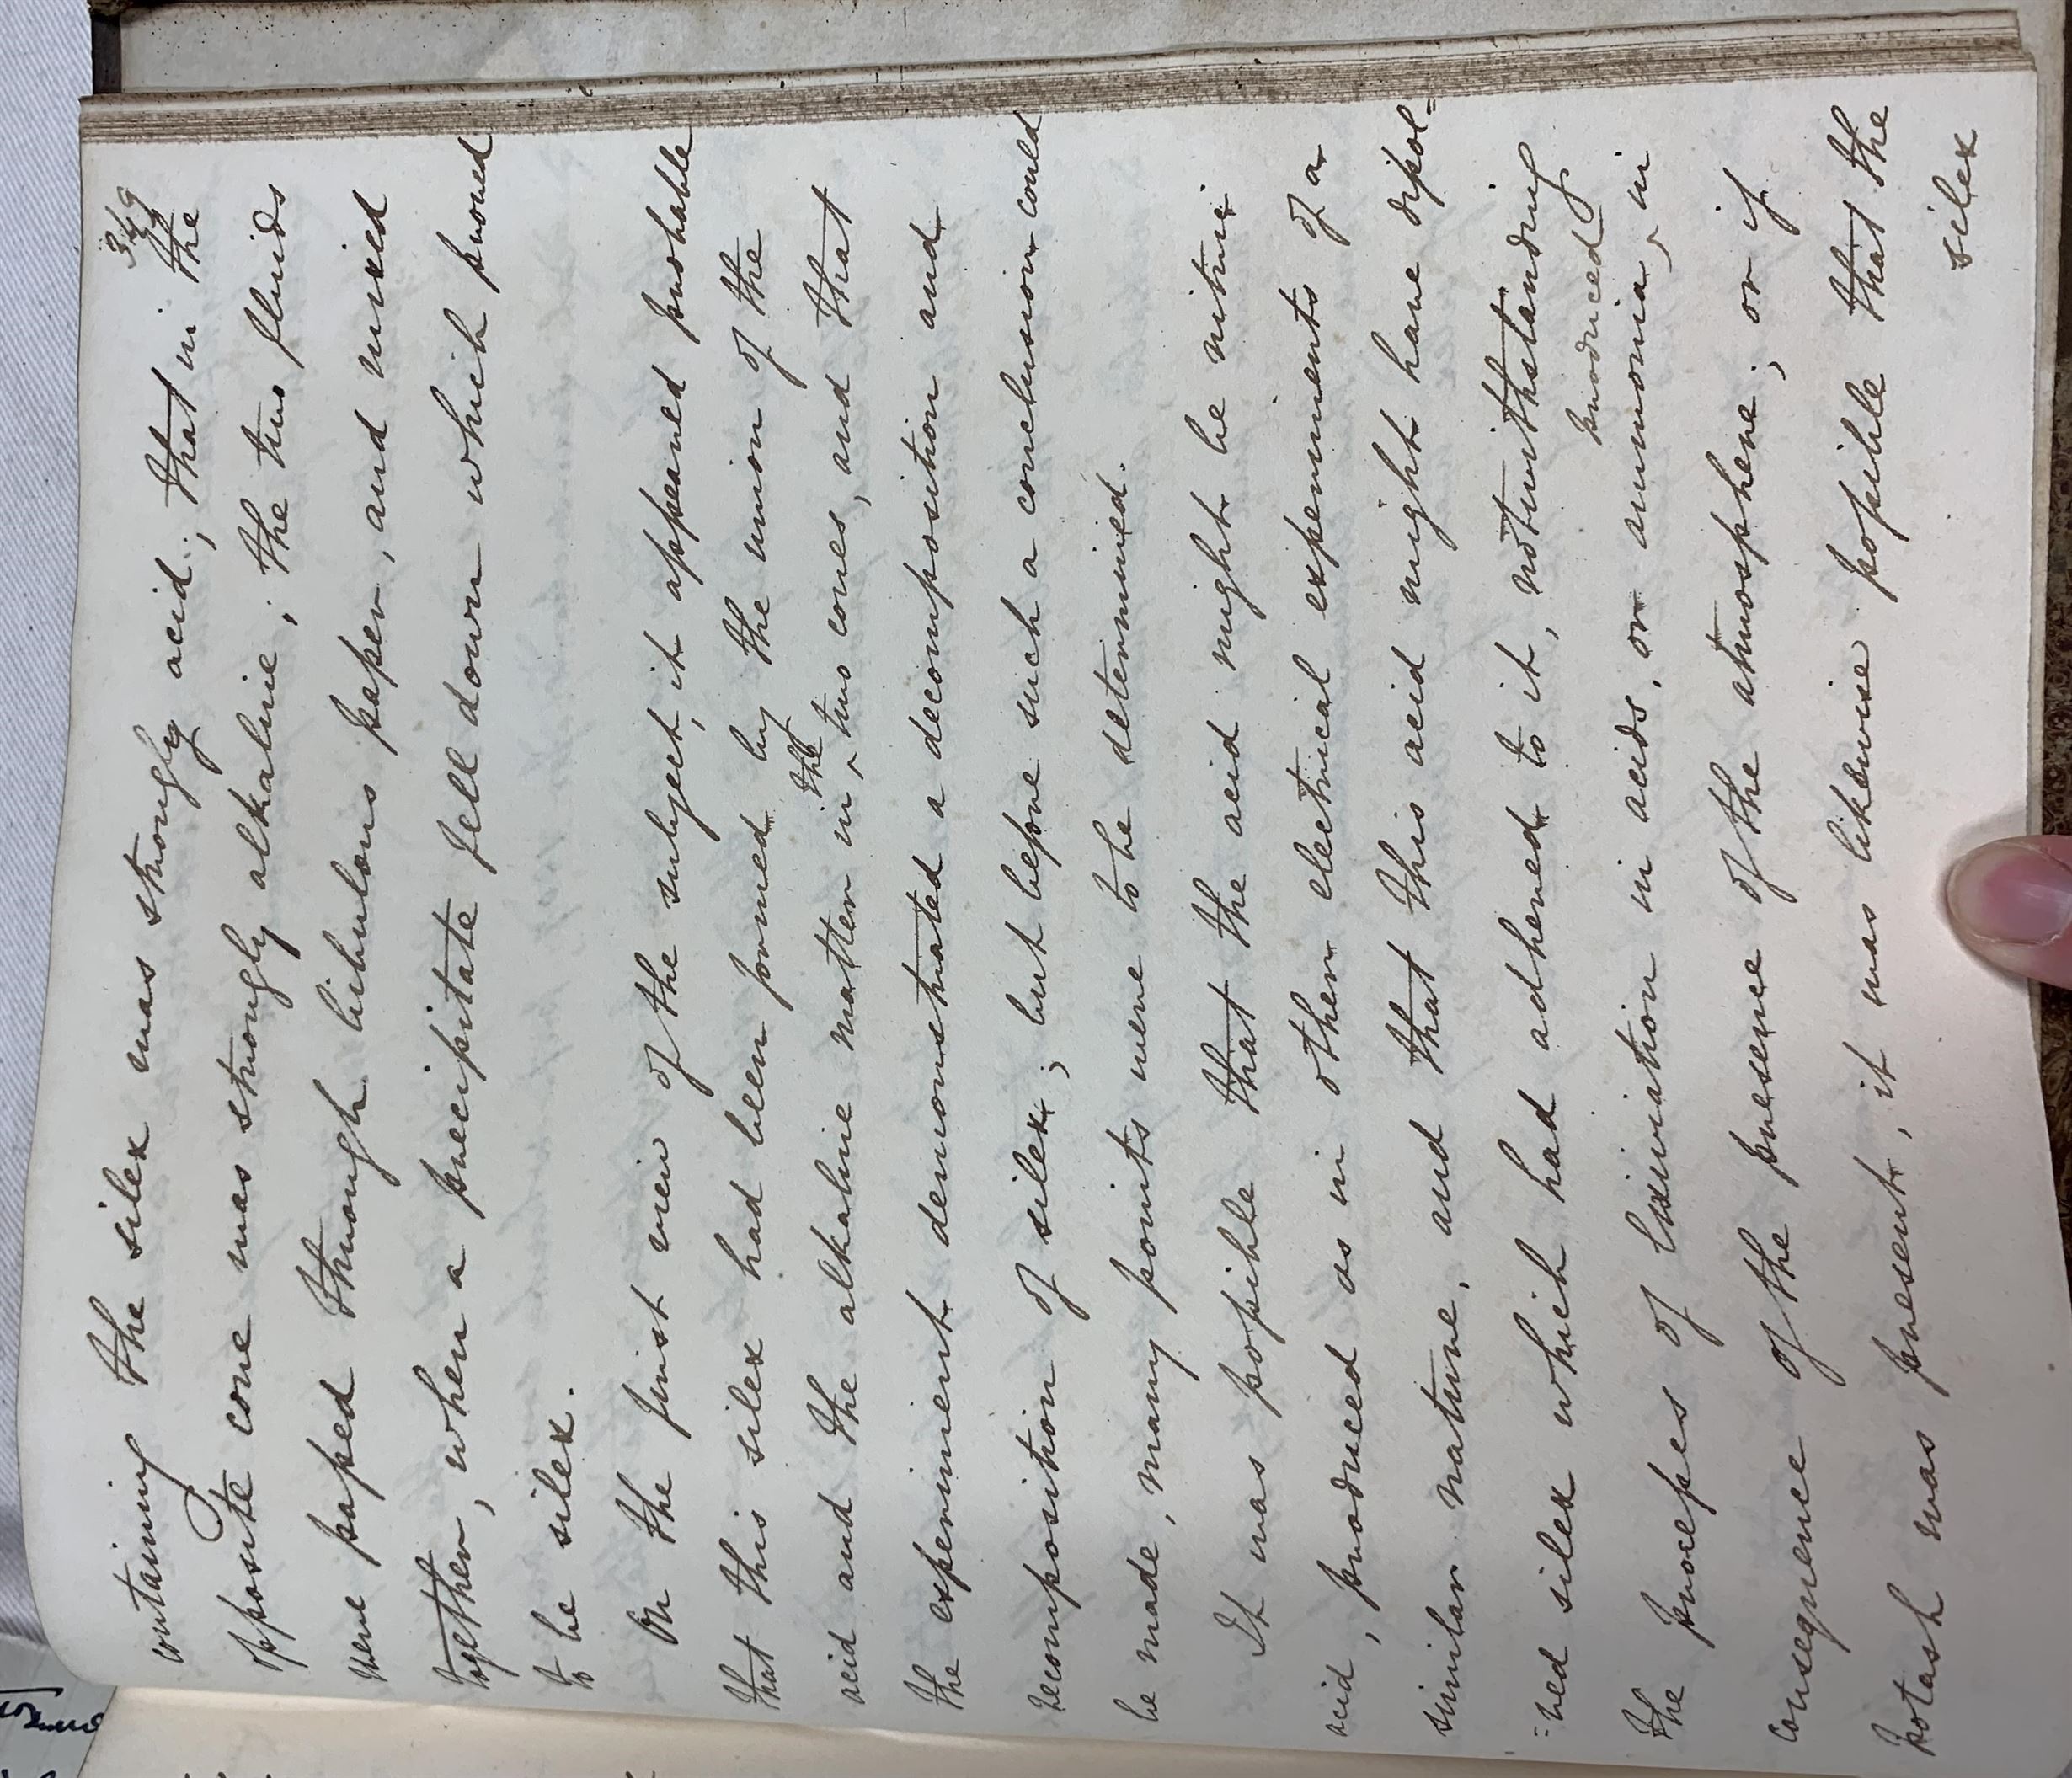 349
containing the silex was strongly acid; that in the
opposite cone was strongly alkaline; the two fluids
were passed through bibulous paper, and mixed
together, when a precipitate fell down which proved
to be silex.
On the first view of the subject, it appeared probable
that this silex had been formed by the union of the
acid and the alkaline matter in ^the two cones, and that
the experiment demonstrated a decomposition and
recomposition of silex; but before such a conclusion could
be made, many points were to be determined.
It was possible that the acid might be nitric
acid, produced as in other electrical experiments of a
similar nature, and that this acid might have dissol=
=ved silex which had adhered to it, notwithstanding
the process of lixiviation in acids, or ammonia, ^produced in
consequence of the presence of the atmosphere; or if
potash was present, it was likewise possible that the
silex